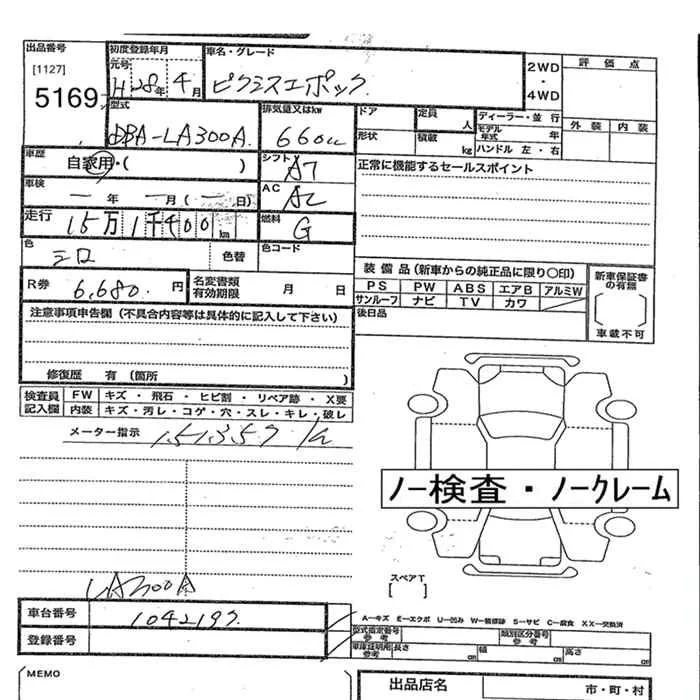 出品番号
[1127]
5169
初度登録年月
元号
H 28年 4月
車名・グレード
ピクシスエポック
2WD
・
4WD
評価点
外装 内装
型式
DBA-LA300A
排気量又はkw
660cc
ドア
形状
定員 人
積載 kg
ディーラー・並行
モデル年式 年
ハンドル 左・右
車歴
自家用・( )
シフト
A7
正常に機能するセールスポイント
車検
ー年 ー月(ー日)
AC
AC
走行
15万1千400km
燃料
G
色
シロ
色替
色コード
R券
6,680円
名変書類有効期限 月 日
装備品(新車からの純正品に限り〇印)
PS PW ABS エアB アルミW
サンルーフ ナビ TV カワ
後日品
新車保証書の有無
車載不可
注意事項申告欄(不具合内容等は具体的に記入して下さい)
修復歴 有(箇所 )
検査員記入欄
FW キズ・飛石・ヒビ割・リペア跡・X要
内装 キズ・汚レ・コゲ・穴・スレ・キレ・破レ
メーター指示 151357 km
ノー検査・ノークレーム
スペアT
[ ]
LA300A
車台番号
1042197
登録番号
A−キズ E−エクボ U−凹み W−補修跡 S−サビ C−腐食 XX−交換済
型式指定番号 参考
類別区分番号 参考
車庫証明用 参考
長さ cm
幅 cm
高さ cm
MEMO
出品店名
市・町・村